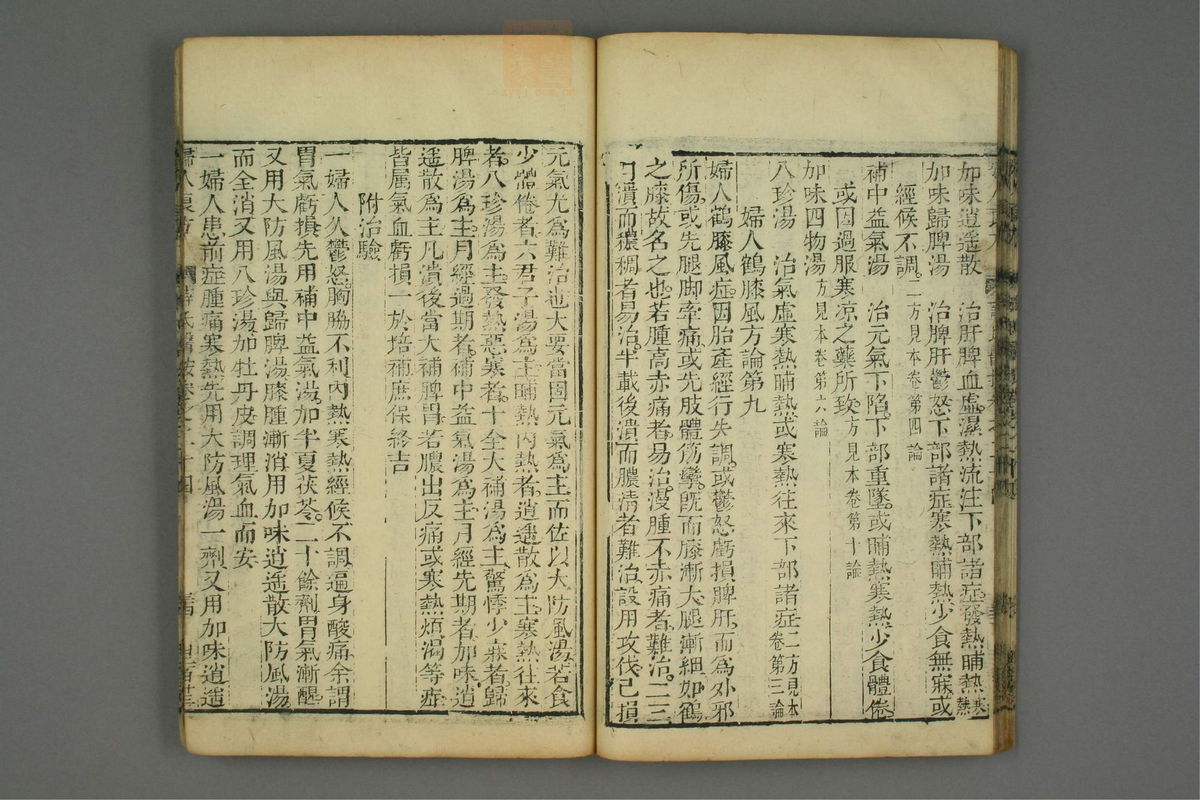 加味逍遥散　治肝脾血虚濕熱流注下部諸症發熱晡熱寒熱
加味歸脾湯　治脾肝鬱怒下部諸症寒熱晡熱少食無寐或
經候不調二方見本卷第四論
補中益氣湯　治元氣下陷下部重墜或晡熱寒熱少食體倦
或因過服寒凉之藥所致方見本卷第十論
加味四物湯方見本卷第六論
八珍湯　治氣虚寒熱晡熱或寒熱往來下部諸症二方見本卷第三論
婦人鶴膝風方論第九
婦人鶴膝風症因胎產經行失調或鬱怒虧損脾肝而爲外邪
所傷或先腿脚牽痛或先肢體筋攣旣而膝漸大腿漸細如鶴
之膝故名之也若腫高赤痛者易治漫腫不赤痛者難治二三
月潰而穠稠者易治半載後潰而膿淸者難治設用攻伐已損
元氣尤爲難治也大要當固元氣爲主而佐以大防風湯若食
少體倦者六君子湯爲主晡熱內熱者逍遥散爲主寒熱往來
者八珍湯爲主發熱惡寒者十全大補湯爲主驚悸少寐者歸
脾湯爲主月經過期者補中益氣湯爲主月經先期者加味逍
遥散爲主凡潰後當大補脾胃若膿出反痛或寒熱煩渴等症
皆属氣血虧損一於培補庶保終吉
附治驗
一婦人久鬱怒胸脇不利內熱寒熱經候不調遍身酸痛余謂
胃氣虧損先用補中益氣湯加半夏茯苓二十餘劑胃氣漸醒
又用大防風湯與歸脾湯膝腫漸消用加味逍遥散大防風湯
而全消又用八珍湯加牡丹皮調理氣血而安
一婦人患前症腫痛寒熱先用大防風湯一劑又用加味逍遥
婦人良方　薛氏醫按卷之二十四